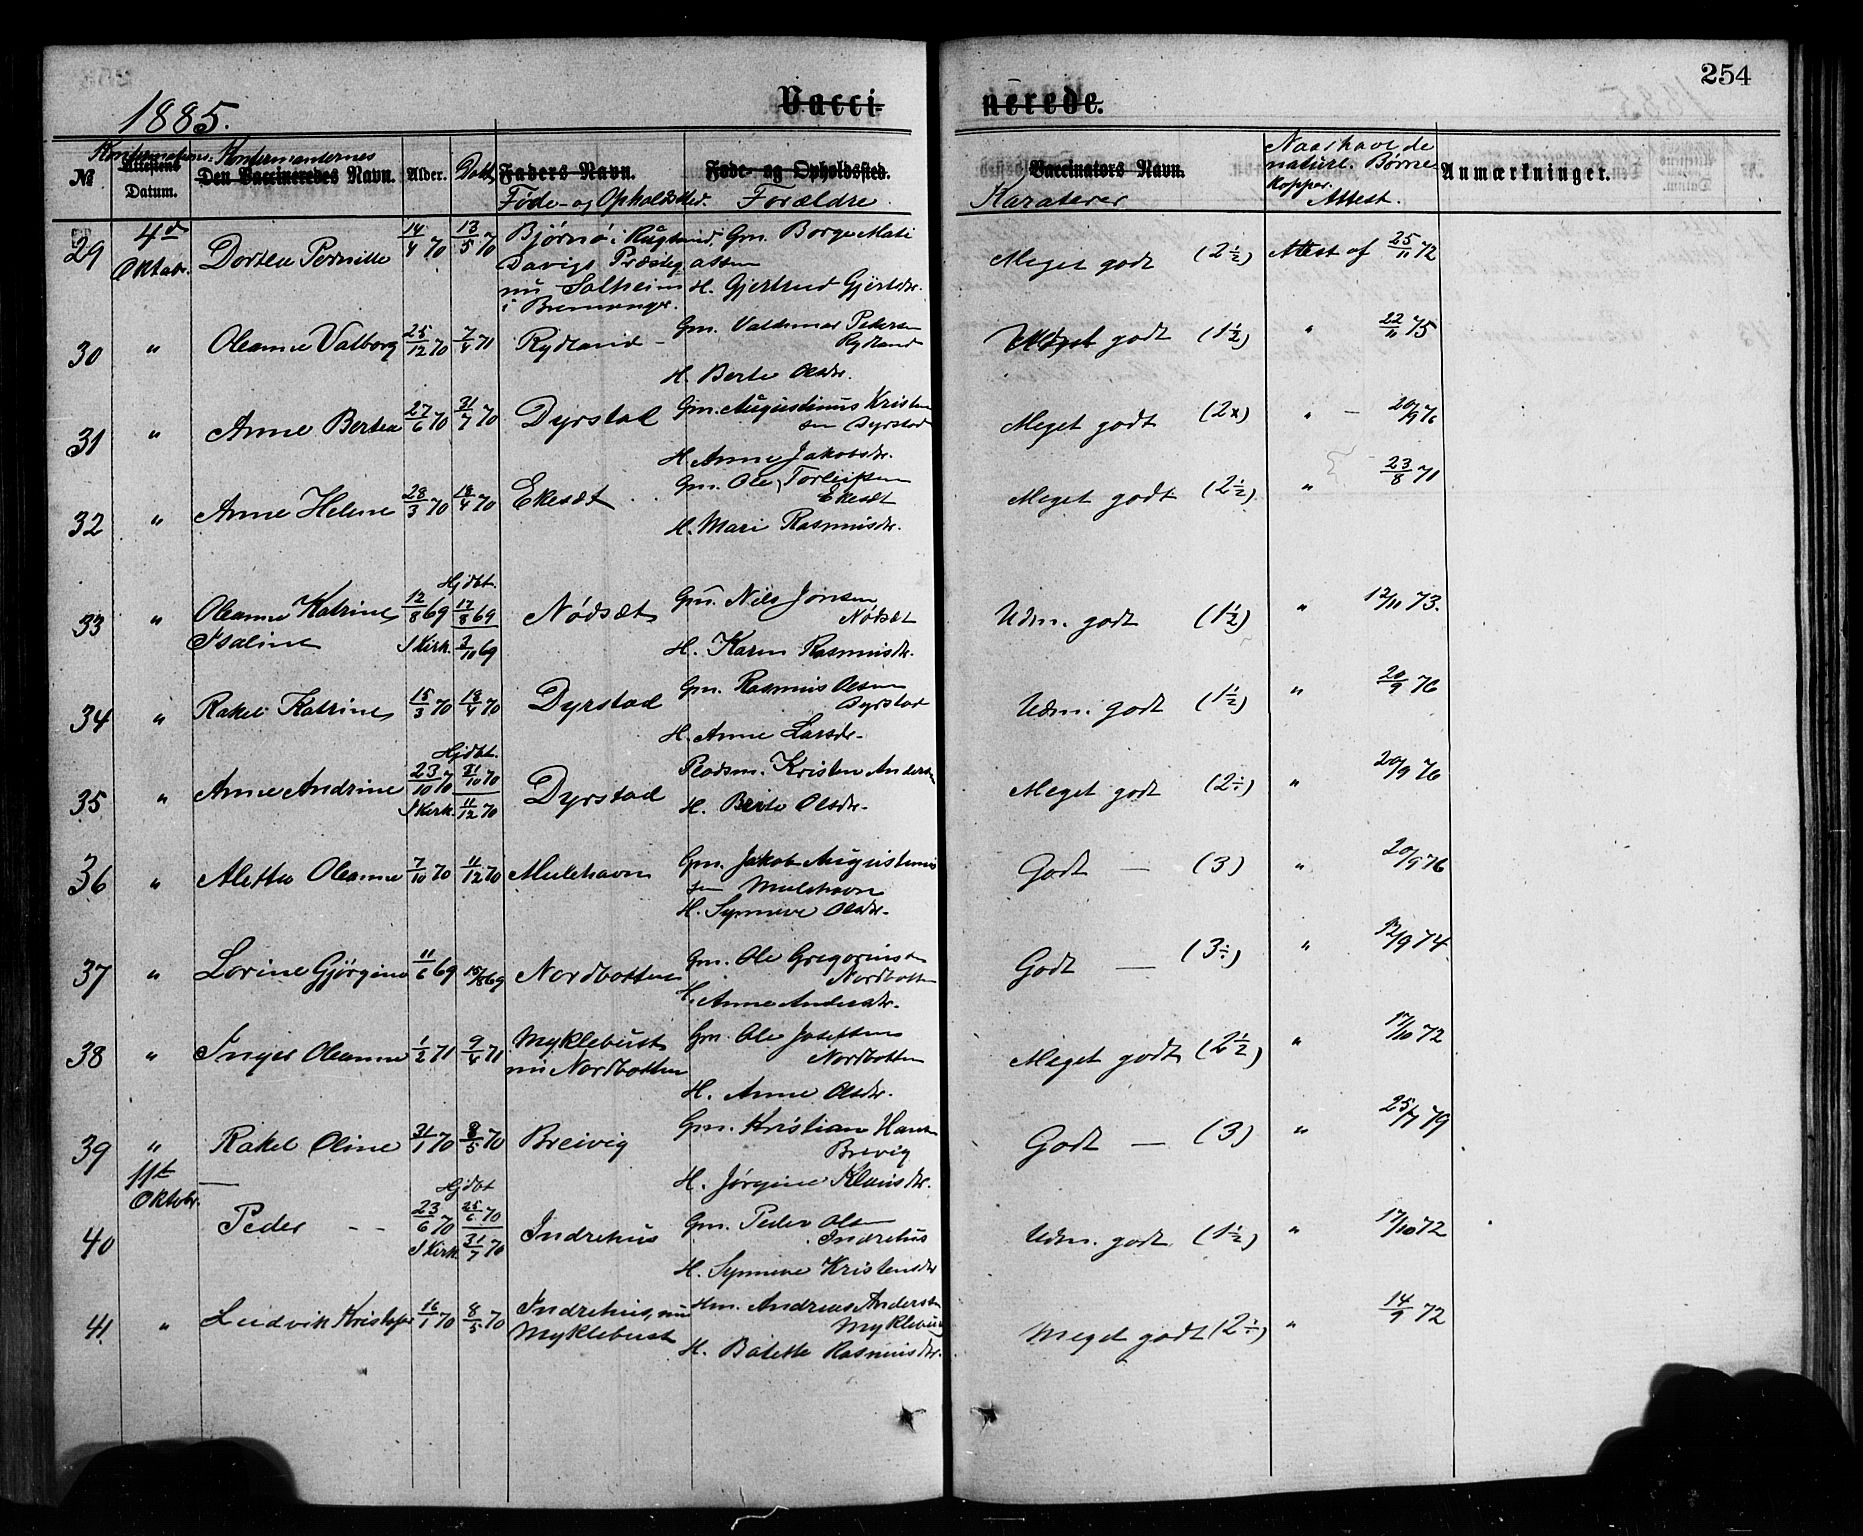 254
1885.
Vaccinerede.
Konfirmations- Konfirmanternes
№ Attestens Datum. Den Vaccineredes Navn. Alder. Døbt Faders Navn. Føde- og Opholdsted.
Føde- og Opholdssted. Forældre
Vaccinators Navn. Naar havt de
naturl. Børne-
kopper.
Attest.
Anmærkninger.
Karakterer
29 4de Oktobr. Dortea Pernille 14/4 70 13/5 70 Bjørnø i Gm. Børge Mati
Davigs Præsteg assen
nu Solheim H. Gjertrud Gjertsdr.
i Bremanger.
Meget godt (2½) Attest af 25/11 72
30 " Oleanna Valborg 25/12 70 7/4 71 Rydland - Gm. Valdemar Pedersen
Rydland
H. Berte Olsdr.
godt (1½) " 22/11 75
31 " Anne Bertea 27/6 70 31/7 70 Dyrstad Gm. Augustinus Kristen
sen Dyrstad
H. Anne Jakobsdr.
Meget godt (2x) " - 20/9 76
32 " Anne Helene 28/3 70 18/4 70 Ekesæt Gm. Ole Torleifsen
Ekesæt
H. Mari Rasmusdr.
Meget godt (2½) " 23/8 71
33 " Oleanna Katrine 12/8 69 Hjdbt. 17/8 69 Nødsæt Gm. Nils Jonsen
Nødsæt
Isaline I Kirk. 3/10 69 H. Karen Rasmusdr.
Udm. godt (1½) " 12/11 73.
34 " Rakel Katrine 15/3 70 18/4 70 Dyrstad Gm. Rasmus Olsen
Dyrstad
H. Anne Larsdr.
Udm. godt (1½) " 20/9 76
35 " Anne Andrine 23/10 70 Hjdbt. 31/10 70 Dyrstad Pladsm. Kristen Andersen
I Kirk. 11/12 70 H. Berte Olsdr.
Meget godt (2÷) " 20/9 76
36 " Aletta Oleanna 7/10 70 11/12 70 Mulehavn Gm. Jakob Augustinus
sen Mulehavn
H. Synneve Olsdr.
Godt — (3) " 20/9 76
37 " Lorine Gjørgine 11/6 69 15/8 69 Nordbotten Gm. Ole Gregoriusen
Nordbotten
H. Anne Andersdr.
Godt — (3÷) " 12/9 74
38 " Inger Oleanna 1/2 71 9/4 71 Myklebust Gm. Ole Josefsen
nu Nordbotten Nordbotten
H. Anne Olsdr.
Meget godt (2½) " 17/10 72
39 " Rakel Oline 31/1 70 8/5 70 Breivig Gm. Kristian Hansen
Brevig
H. Jørgine Klausdr.
Godt — (3) " 25/7 79
40 11te Oktobr. Peder -- 23/6 70 Hjdbt 25/6 70 Indrehus Gm. Peder Olsen
Indrehus
I Kirk. 31/7 70 H. Synneve Kristensdr
Udm. godt (1½) " 17/10 72
41 " Ludvik Kristofer 16/1 70 8/5 70 Indrehus, nu Hm. Andreas Andersen
Myklebust Myklebust
H. Batette Rasmusdr.
Meget godt (2÷) " 14/9 72